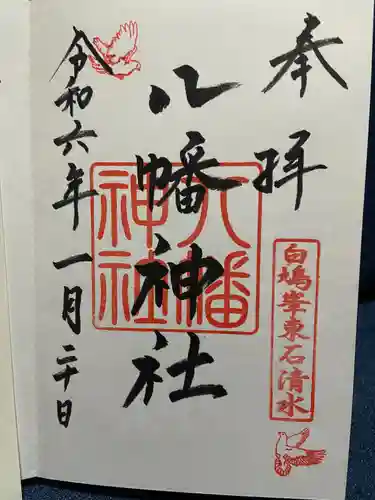 奉拝
白鳩峯東石清水
八幡神社
八幡神社
令和六年一月二十日